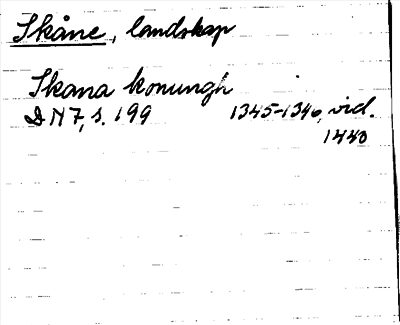 Skåne, landskap
Skana konungh
DN 7, s. 199 1345-1346, vid.
1440